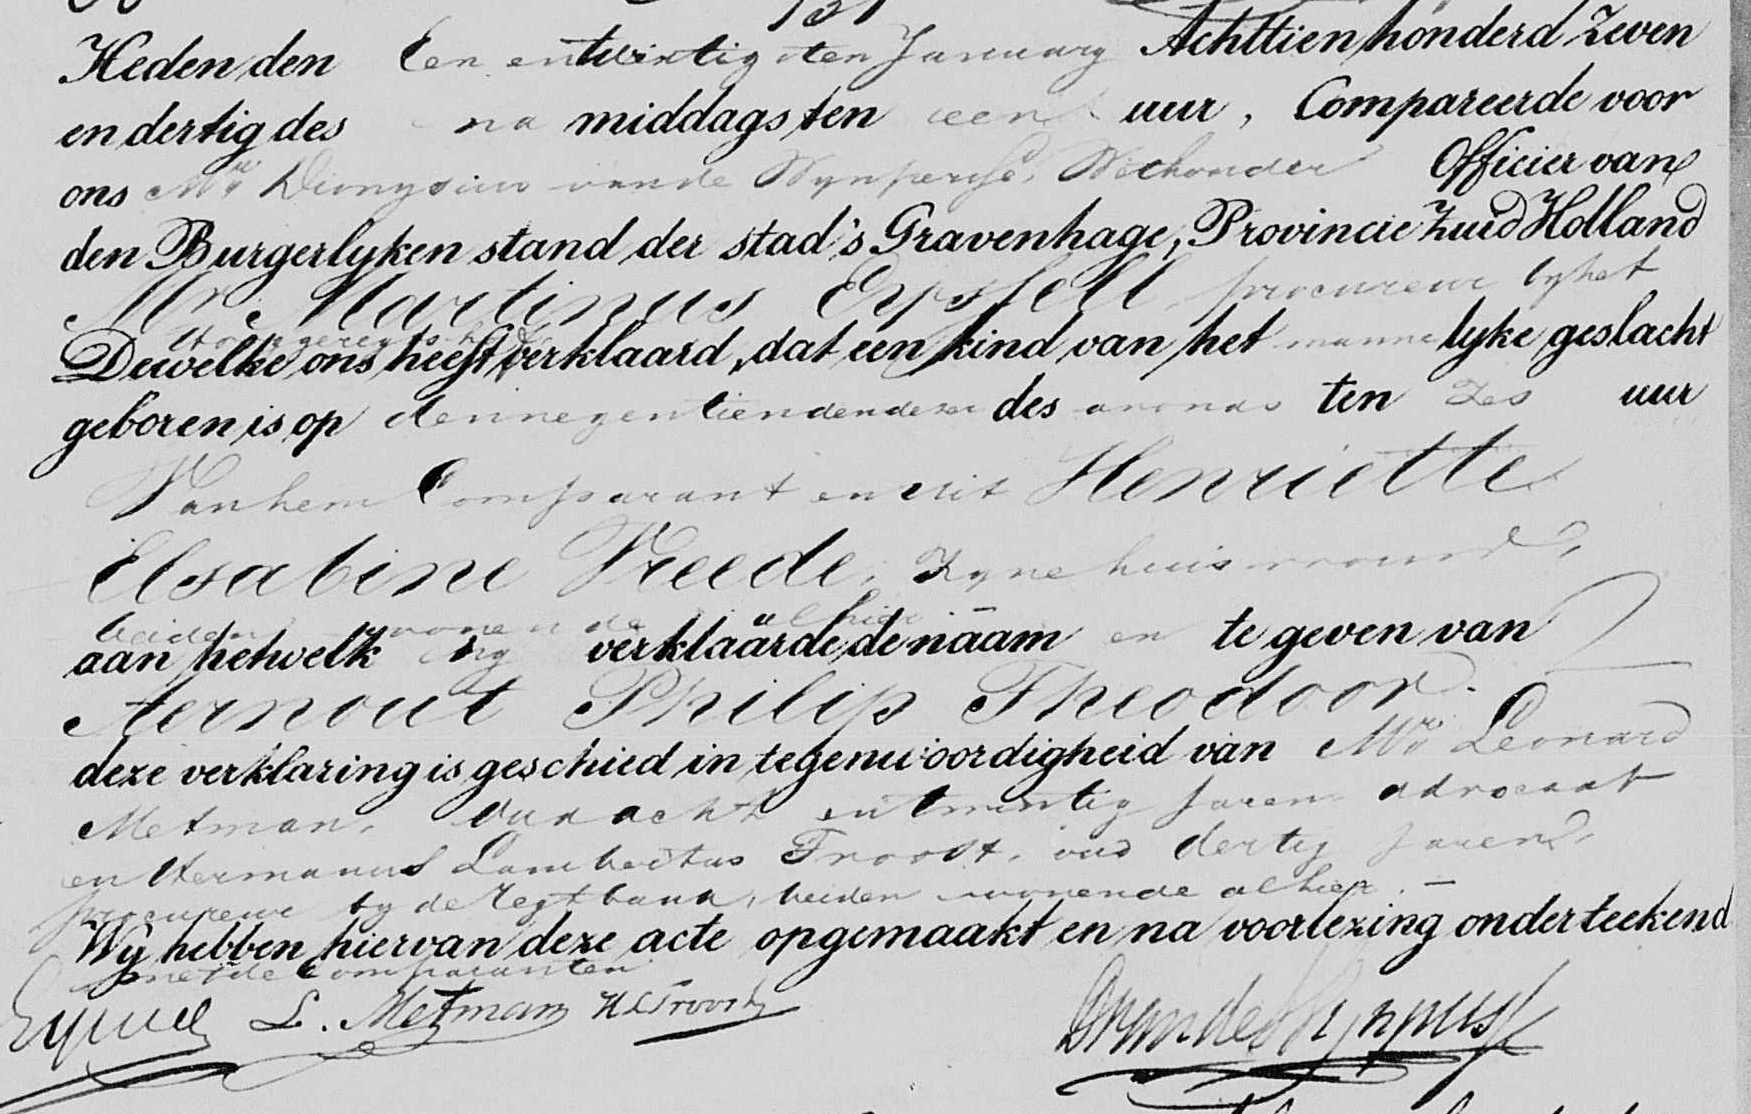 Heden den Een en twintigsten January Achttien honderd Zeven
en dertig des na middags ten een uur, Compareerde voor
ons Mr. Dionysius van de Wynpersse, Wethouder Officier van
den Burgerlyken stand der stad 's Gravenhage, Provincie Zuid Holland
Mr. Martinus Eyssell, procureur by het
Hoog geregtshof
Dewelke ons heeft verklaard, dat een kind van het mannelyke geslacht
geboren is op den negentienden dezer des avonds ten Zes uur
Van hem Comparant en uit Henriette
Elsabine Vreede, Zyne huisvrouw,
beiden wonende alhier
aan hetwelk hy verklaarde de naam en te geven van
Aernout Philip Theodoor.
deze verklaring is geschied in tegenwoordigheid van Mr. Leonard
Metman, Oud acht en twintig Jaren advocaat
en Hermanus Lambertus Troost, oud dertig Jaren,
procureur by de regtbank, beiden wonende alhier. —
Wy hebben hiervan deze acte opgemaakt en na voorlezing onderteekend
met de Comparanten
Eyssell L. Metman HLTroost
D van de Wynpersse